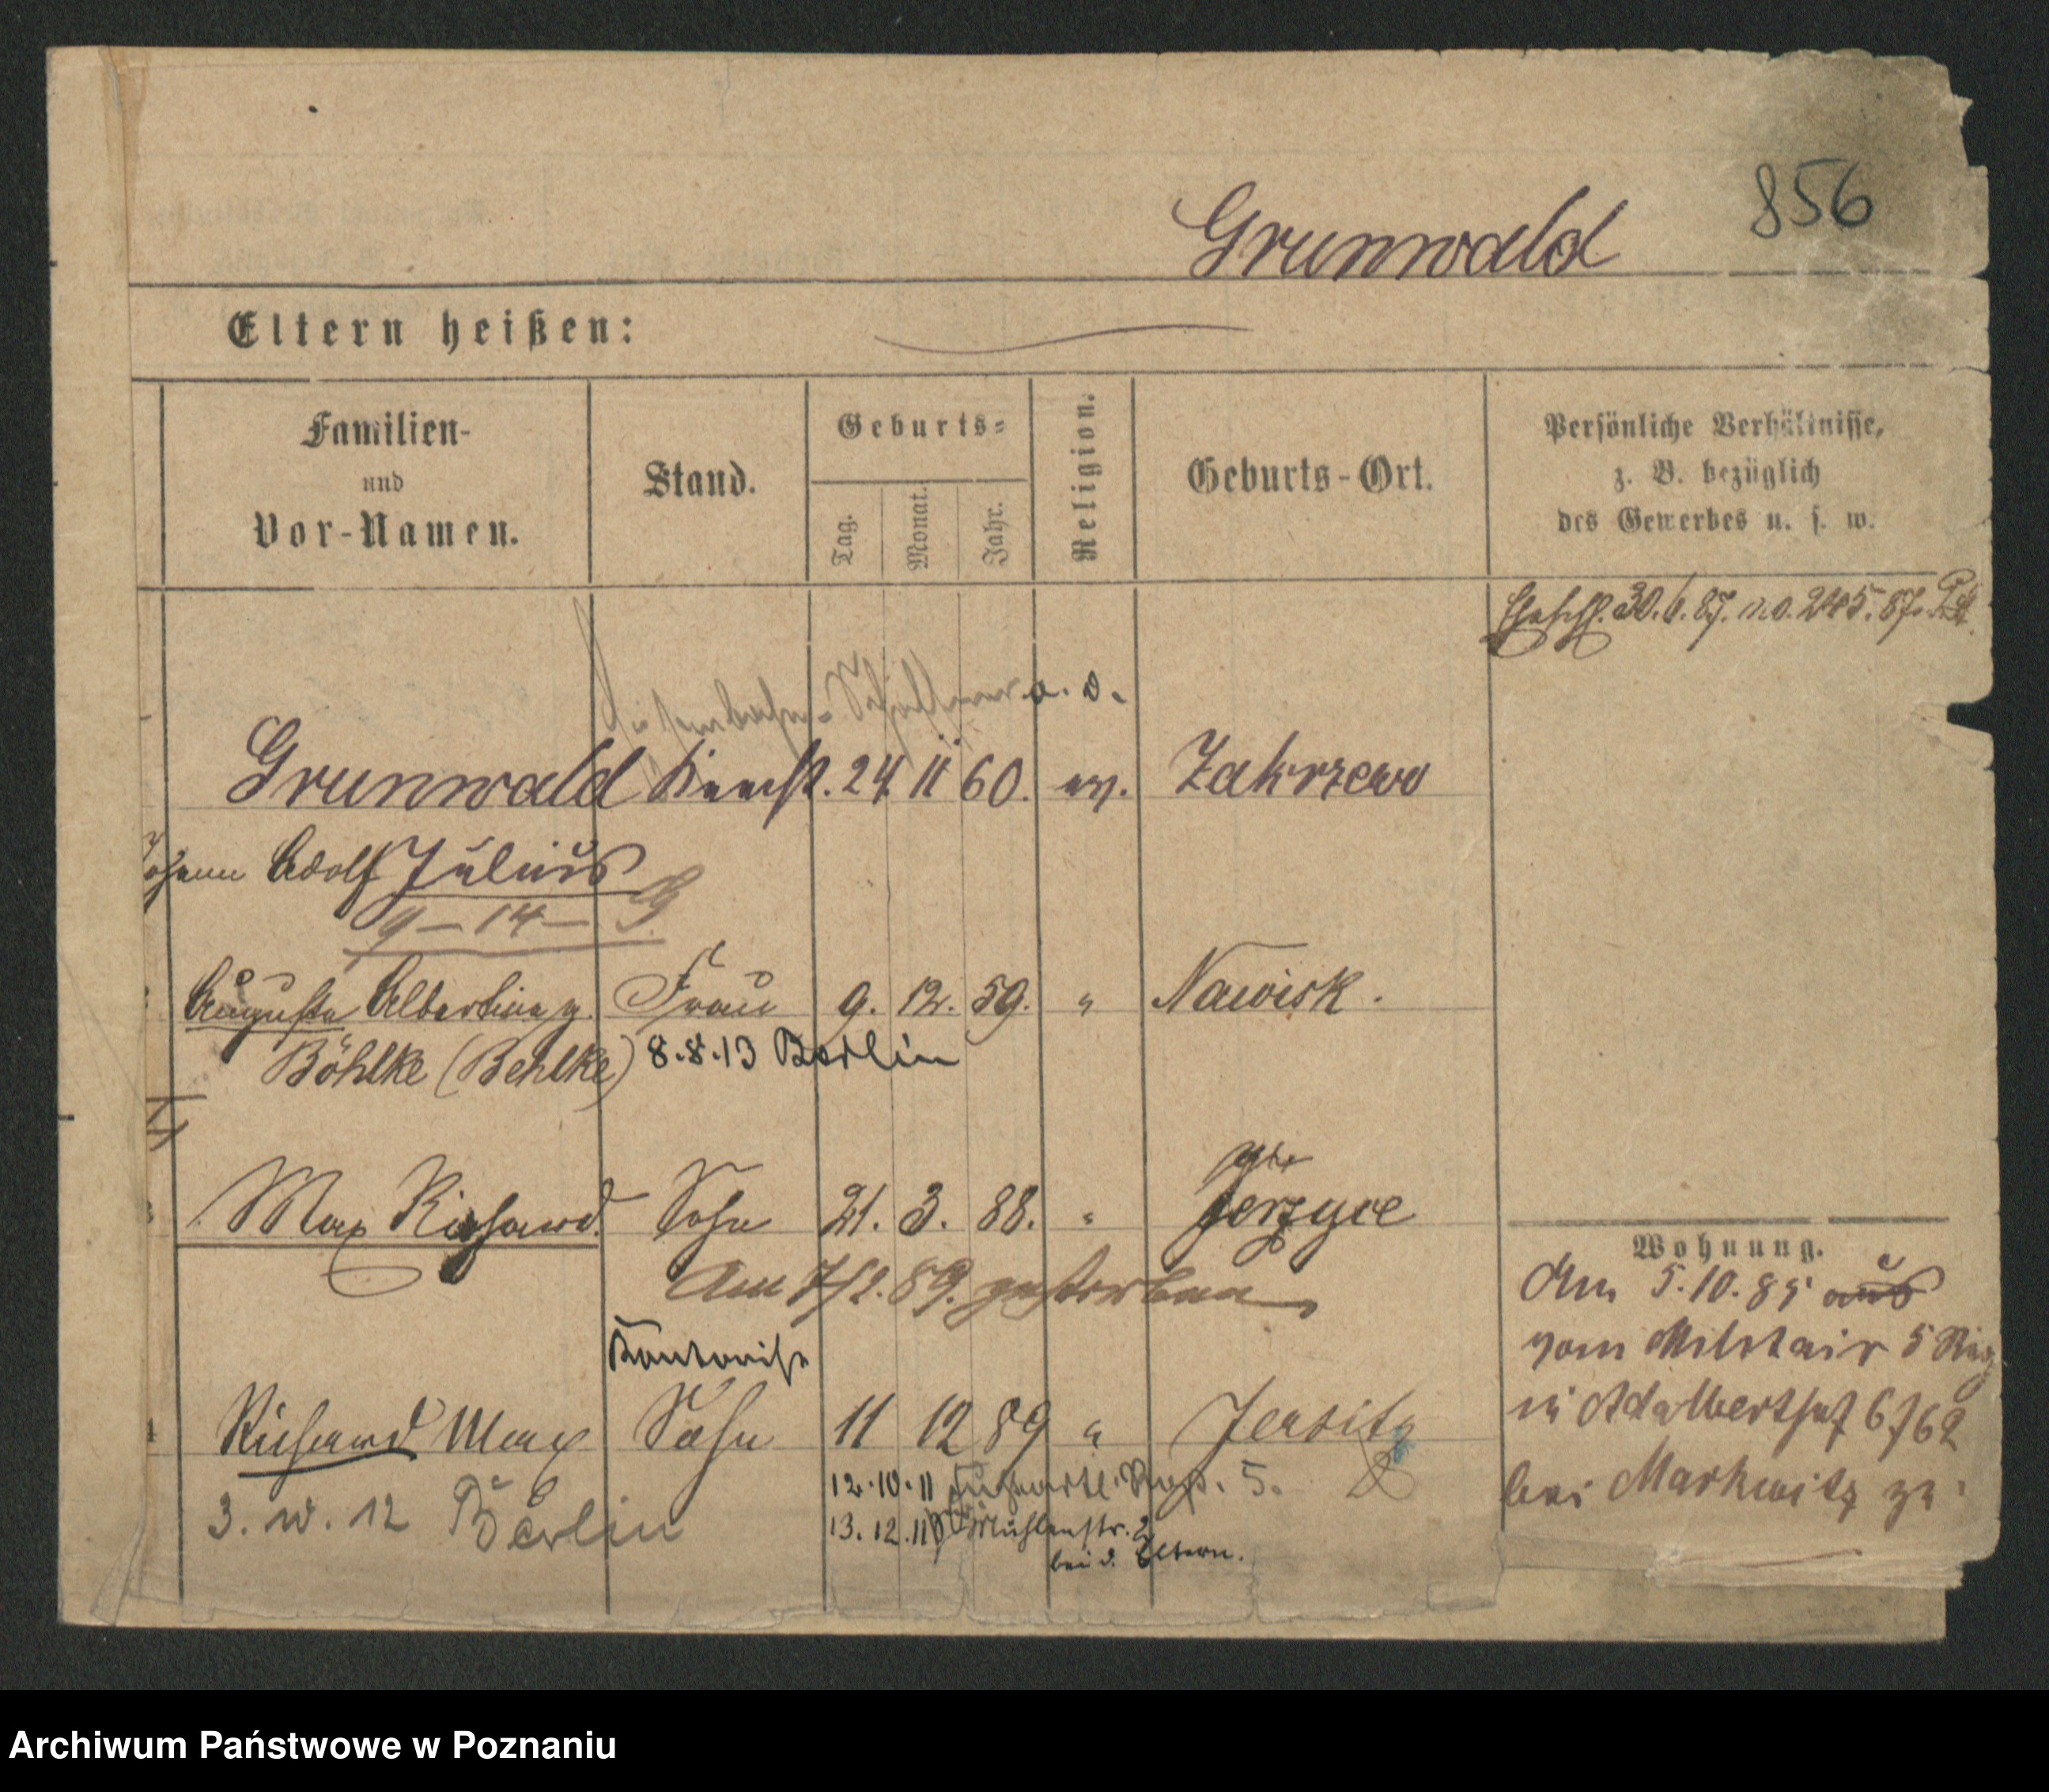 856
Grunwald
Eltern heißen:
Familien-
und
Vor-Namen.
Stand.
Geburts-
Tag.
Monat.
Jahr.
Religion.
Geburts-Ort.
Persönliche Verhältnisse,
z. B. bezüglich
des Gewerbes u. s. w.
Eheschl. 30.6.87. no. 245.87.
Eisenbahn-Schaffner a. D.
Grunwald Knecht. 24 11 60. ev. Zakrzewo
Johann Adolf Julius
9-14-
Auguste Albertine g. Frau 9. 12. 59. " Nawisk.
Böhlke (Behlke) 8.8.13 Berlin
Max Richard. Sohn 21. 3. 88. " Jerzyce
Am 7/2. 89. gestorben
Wohnung.
Am 5.10.85 aus
vom Militair 5
in Adalbertstr 6/62
bei Markwitz
Kontorist
Richard Max Sohn 11 12 89 " Jersitz
12.10.11 5.
3. 12 Berlin
13.12.11 Mühlenstr. 2
bei d. Eltern.
Archiwum Państwowe w Poznaniu